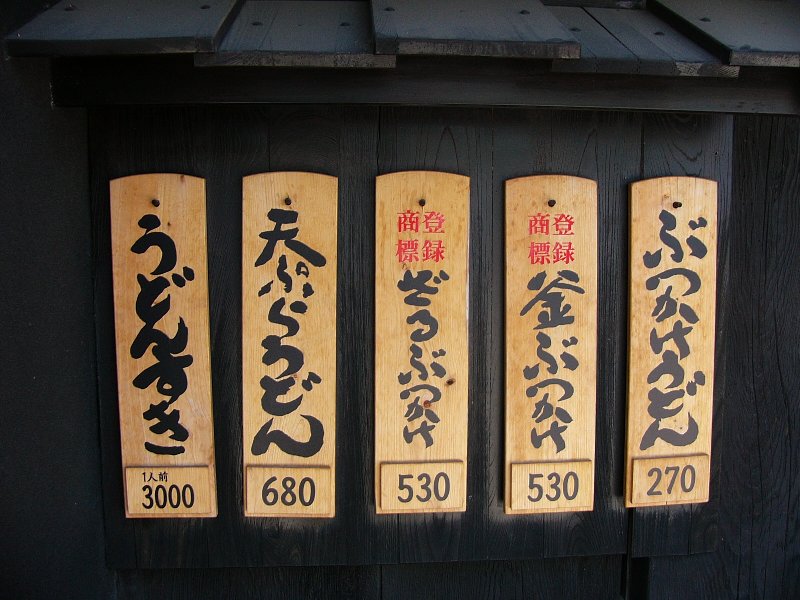 ぶっかけうどん
270
登録
商標
釜ぶっかけ
530
登録
商標
ざるぶっかけ
530
天ぷらうどん
680
うどんすき
1人前
3000